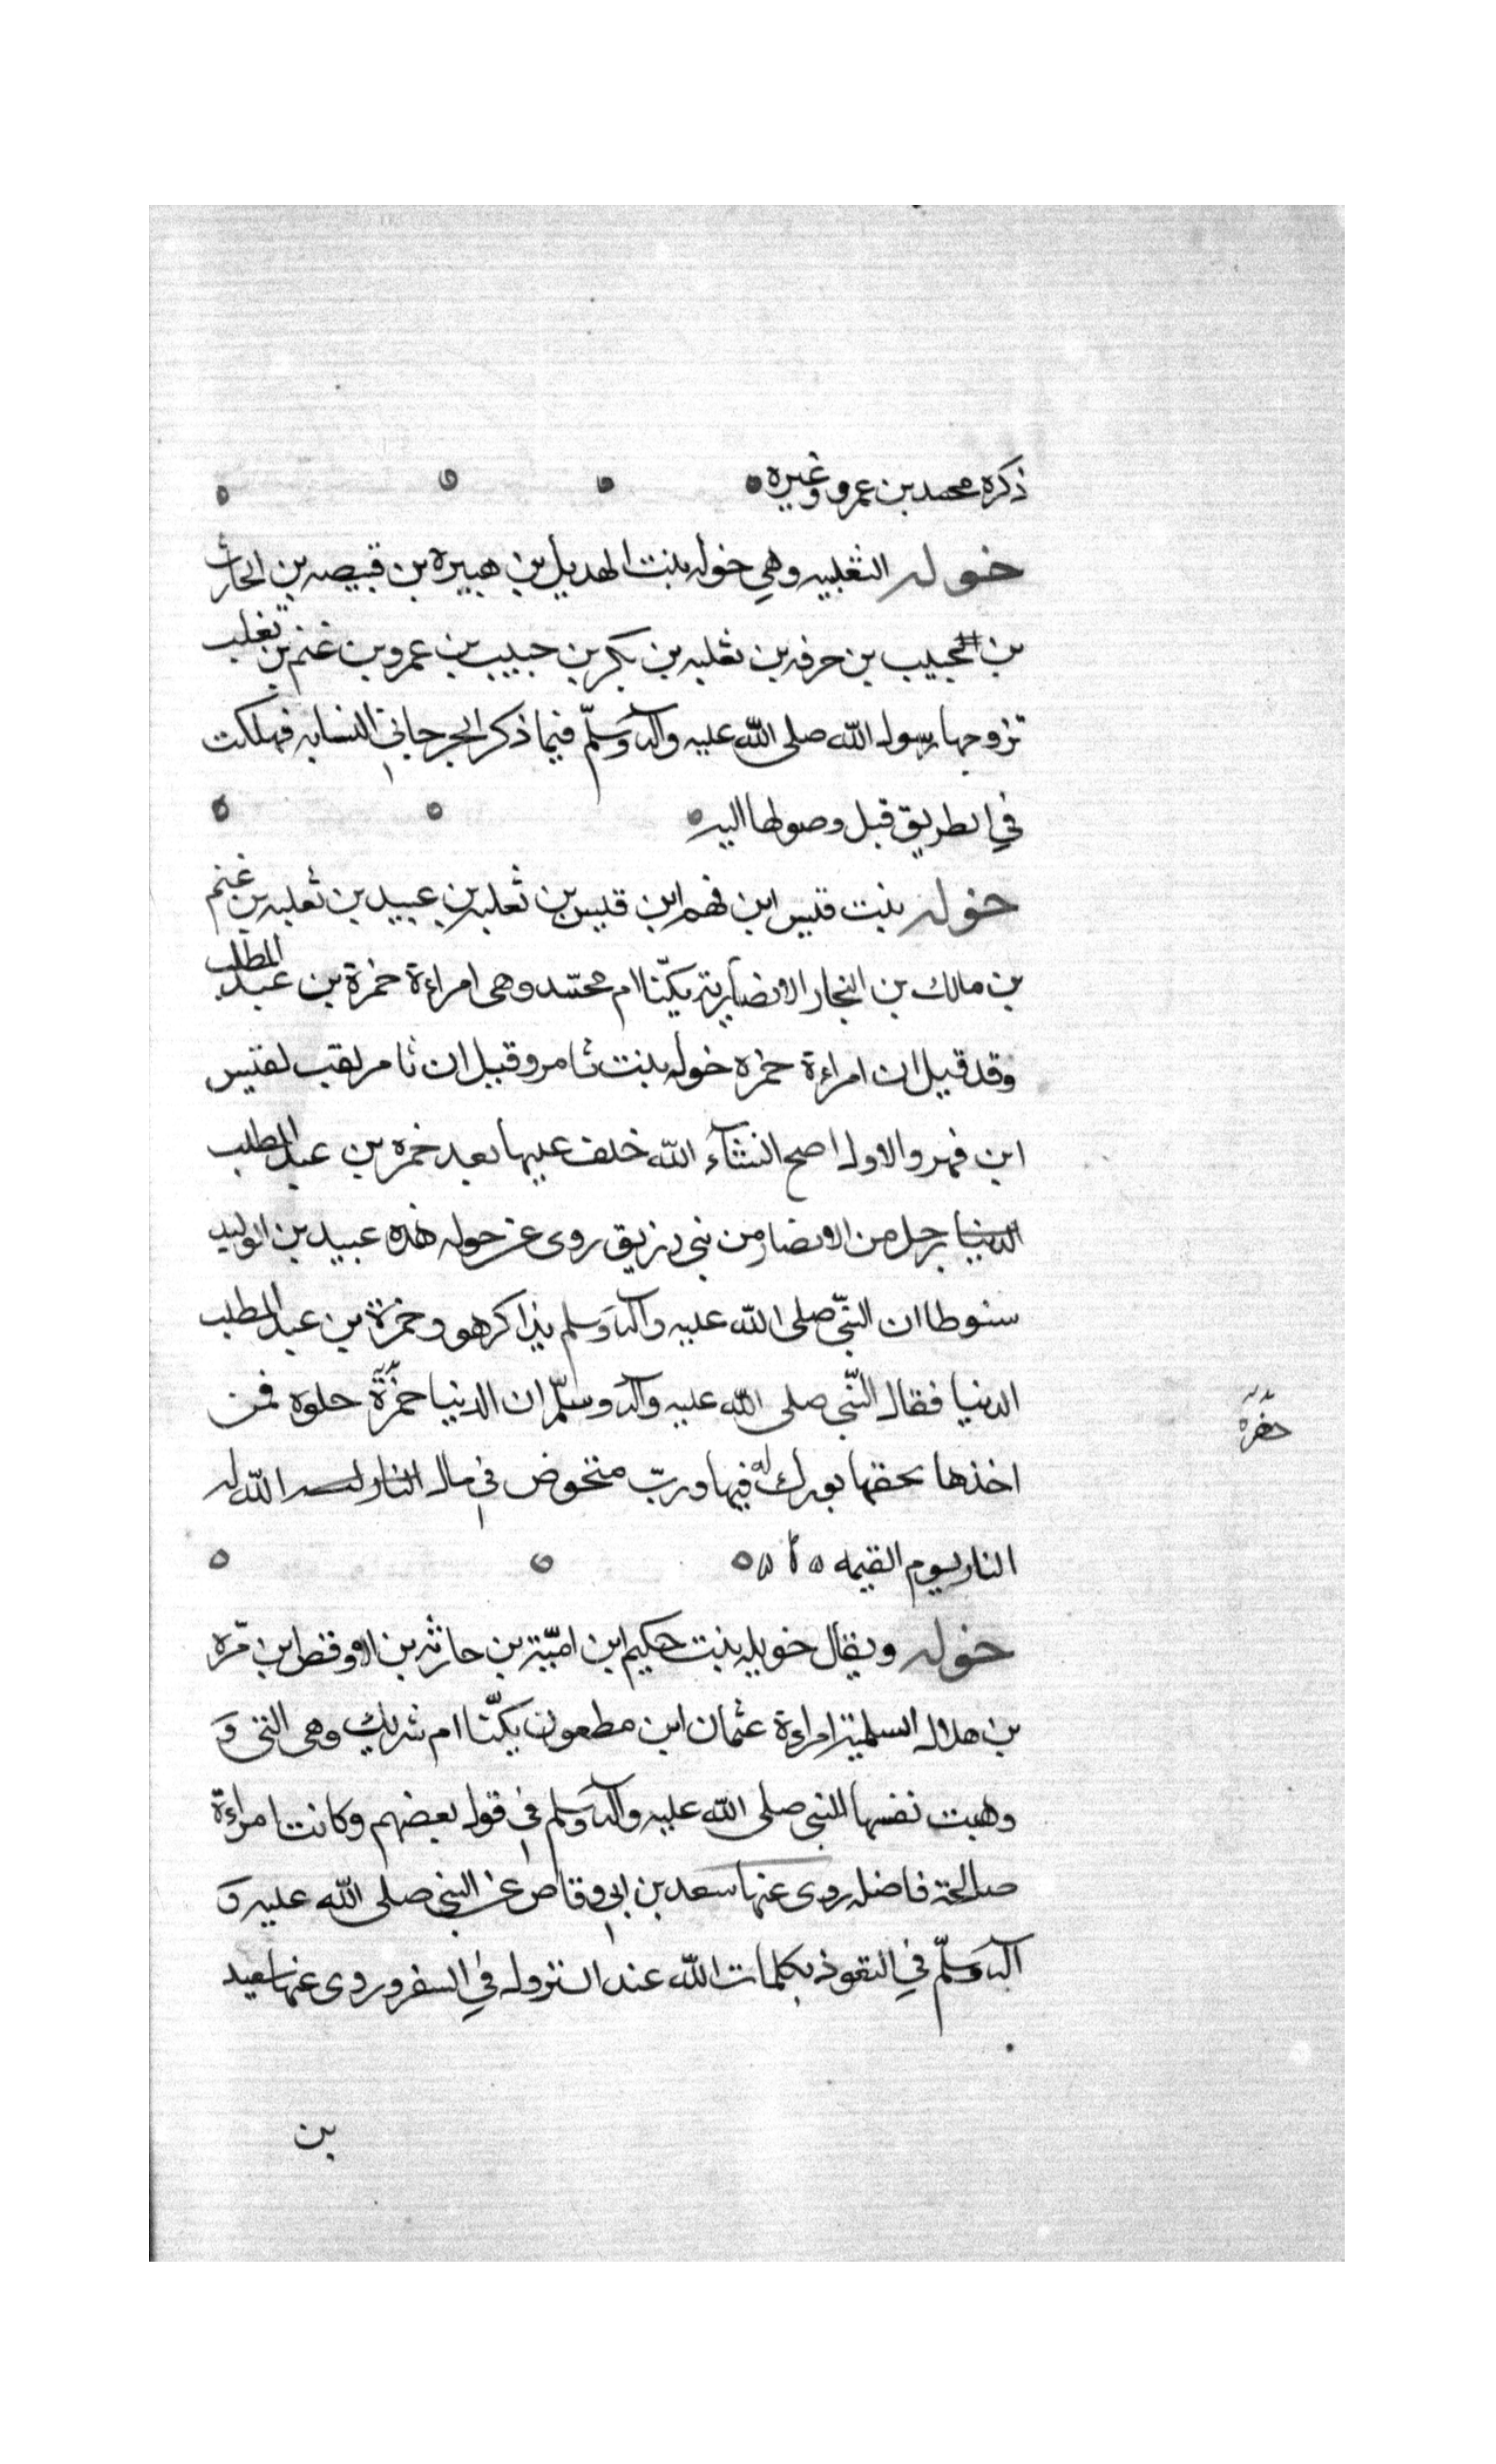 ذكره محمد بن عمرو وغيره
خوله الثغلبيه وهي خوله بنت الهديل بن هبيره بن قبيصه بن الحارث
بن حبيب بن حرفه بن ثعلبه بن بكر بن حبيب بن عمرو بن غنم بن تغلب
تزوجها رسول الله صلى الله عليه وآله وسلّم فيما ذكر الجرجاني النسابه فهلكت
في الطريق قبل وصولها اليه
خوله بنت قيس ابن فهم ابن قيس بن ثعلبه بن عبيد بن ثعلبه بن غنم
بن مالك بن النجار الانصارية يكنّا ام محمّد وهى امراءة حمزة بن عبد المطلب
وقد قيل ان امراءة حمزه خوله بنت ثامر وقيل ان ثامر لقب لقيس
ابن فهر والاول اصح انشآء الله خلف عليها بعد حمزه بن عبد المطلب
الدنيا رجل من الانصار من بني زريق روى عن خوله هذه عبيد بن الوليد
سنوطا ان النبّي صلى الله عليه وآله وسلم يذاكر هو وحمزة بن عبد المطلب
الدنيا فقال النّبي صلى الله عليه وآله وسلّم ان الدنيا خضرة حلوه فمن
خضرة
اخذها بحقها بورك له فيها وربّ متخوض في مال الله له
النار يوم القيمه
خوله ويقال خويله بنت حكيم ابن اميّة بن حارثه بن الاوقص ابن مّره
بن هلال السلمية امراءة عثمان ابن مطعون يكنّا ام شريك وهى التى وَ
وهبت نفسها للنبي صلى الله عليه وآله وسلم في قول بعضهم وكانت امراءة
صالحة فاضله روى عنها سعد بن ابي وقاص عن النبي صلى الله عليه وَ
آله وسلّم في التعوذ بكلمات الله عند النزول في السفر وروى عنها سعيد
بن